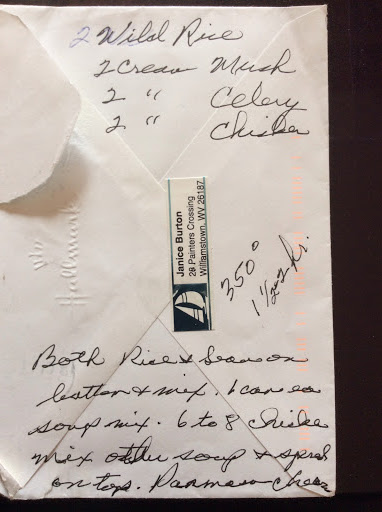 2 Wild Rice
2 Cream Mush
2 " Celery
2 " Chicken
Janice Burton
28 Painters Crossing
Williamstown, WV 26187
350°
1 1/2 hr.
Hallmark
Both Rice & Season on
bottom & mix. 1 can ea
soup mix. 6 to 8 Chicken
mix other soup & spread
on top. Parmesan Cheese